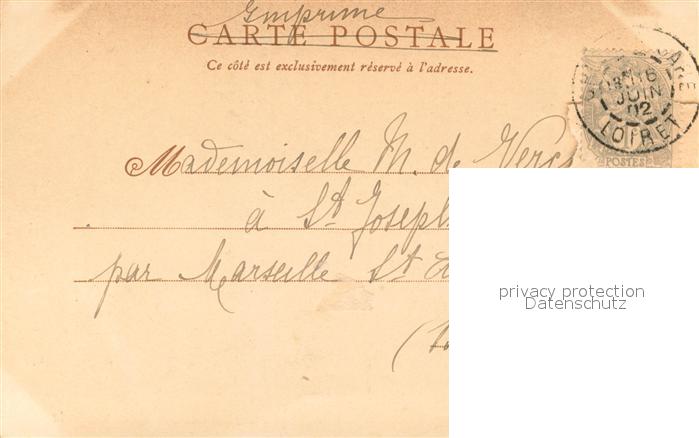 Imprimé
CARTE POSTALE
Ce côté est exclusivement réservé à l'adresse.
16
JUIN
02
LOIRET
POSTES
Mademoiselle M. de
à St Joseph
par Marseille St
privacy protection
Datenschutz